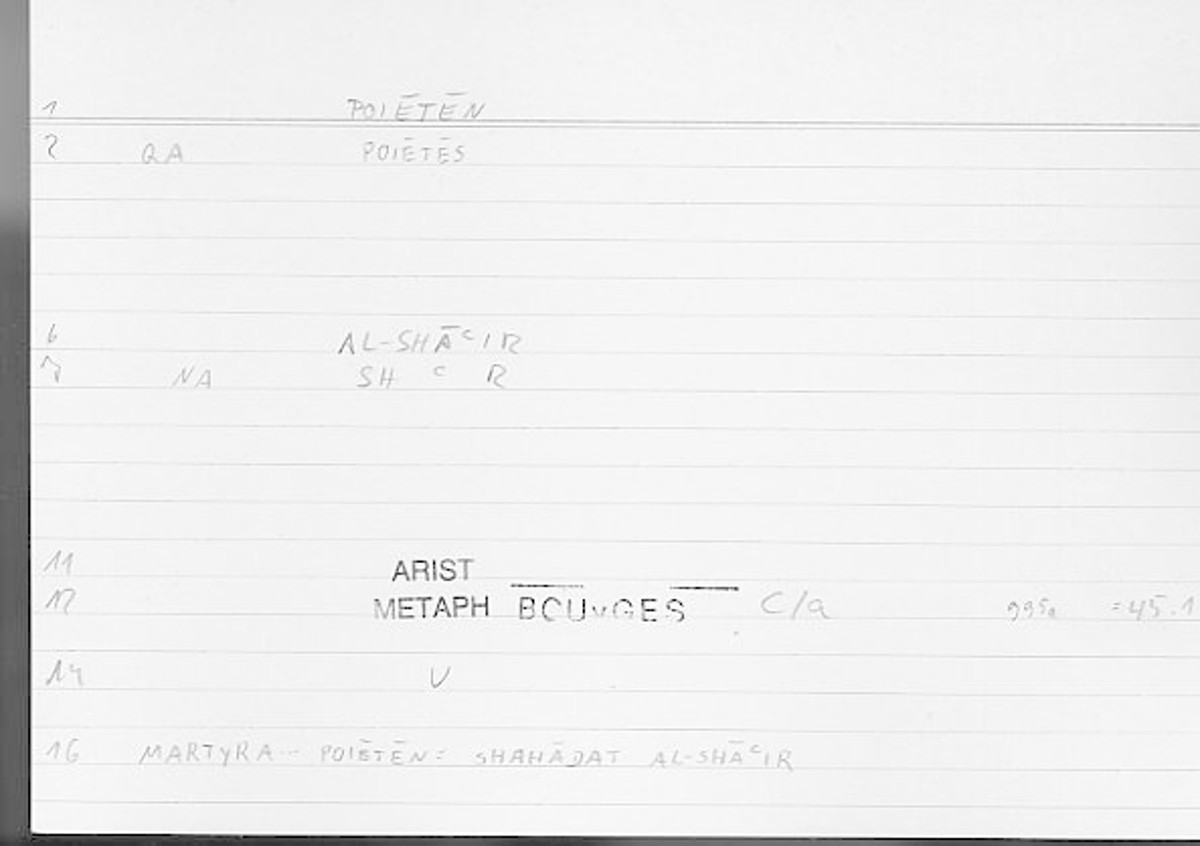 1 POIĒTĒN
2 QA POIĒTĒS
6 AL-SHĀᶜIR
7 NA SH ᶜ R
11 ARIST
12 METAPH BOUYGES C/a 995a =45.1
14 V
16 MARTYRA... POIĒTĒN: SHAHĀDAT AL-SHĀᶜIR